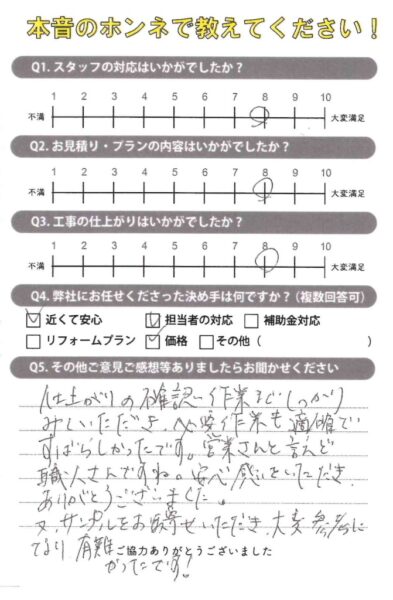 本音のホンネで教えてください！
Q1. スタッフの対応はいかがでしたか？
1 2 3 4 5 6 7 8 9 10
不満 大変満足
Q2. お見積り・プランの内容はいかがでしたか？
1 2 3 4 5 6 7 8 9 10
不満 大変満足
Q3. 工事の仕上がりはいかがでしたか？
1 2 3 4 5 6 7 8 9 10
不満 大変満足
Q4. 弊社にお任せくださった決め手は何ですか？（複数回答可）
近くて安心 担当者の対応 補助金対応
リフォームプラン 価格 その他（ ）
Q5. その他ご意見ご感想等ありましたらお聞かせください
仕上がりの確認〜作業までしっかり
みていただき、作業も適確で
すばらしかったです。営業さんと言えど
職人さんですね。安心感をいただき、
ありがとうございました。
又、サンプルをお取寄せいただき、大変参考に
なり 有難
ご協力ありがとうございました
かったです!